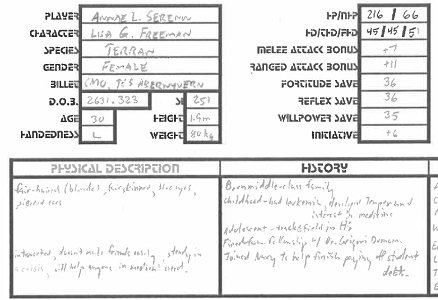 PLAYER ANNAE L. SERENN
CHARACTER LISA G. FREEMAN
SPECIES TERRAN
GENDER FEMALE
BILLET CMO,
D.O.B. 2631.323 SI 251
AGE 30 HEIGHT 1.9m
HANDEDNESS L WEIGHT 80kg
HP/NHP 216 / 66
HD/THD/FHD 45/45/51
MELEE ATTACK BONUS +7
RANGED ATTACK BONUS +11
FORTITUDE SAVE 36
REFLEX SAVE 36
WILLPOWER SAVE 35
INITIATIVE +6
PHYSICAL DESCRIPTION
fair-haired (blonde), fairskinned, blue eyes,
pierced ears
introverted, doesn't make friends easily, steady in
a crisis, will help anyone in medical need.
HISTORY
Born middle-class family
Childhood - had leukemia, developed temper and
interest in medicine
Adolescent - track & field in HS
Fellowship w/ Dr. Grigori
Joined Navy to help finish paying off student
debts.